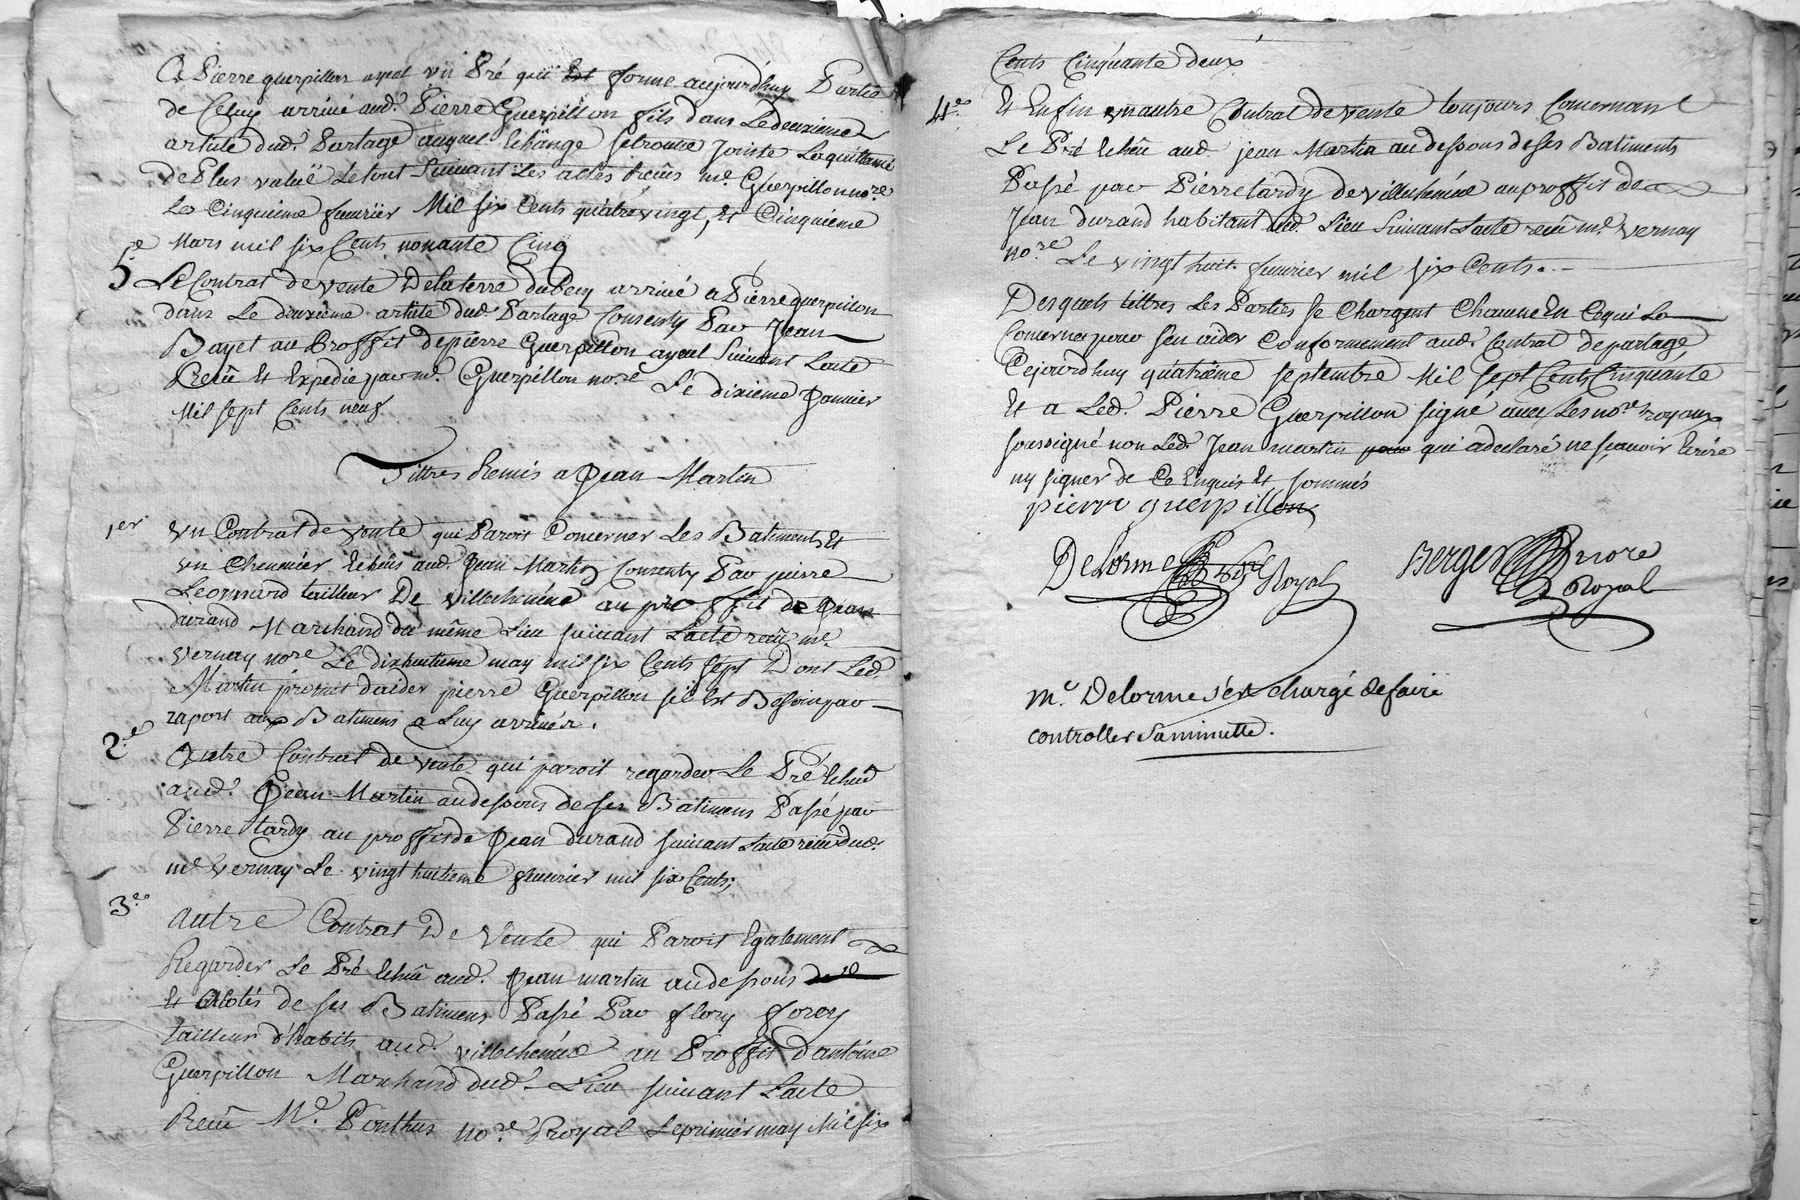 A Pierre guerpillon ayeul un Pré qui est forme aujourd'huy Partie
de Celuy arrivé aud. Pierre Guerpillon fils dans Le deuxieme
article dud. Partage auquel Echange se trouve Jointe La quittance
De Plus valuë Le tout Suivant Les actes Recûs me. Guerpillon nore.
Les Cinquieme fevrier Mil six Cents quatrevingt, et Cinquieme
Mars mil six Cents nonante Cinq
5e Le Contrat de vente De la terre du arrivé a Pierre guerpillon
dans Le deuxième article dud. Partage Consenty Par Jean
Bayet au Proffit de pierre Guerpillon ayeul Suivant Lacte
Recû et Expedié par me. Guerpillon nore. Le dixieme Janvier
Mil sept Cents neuf
Tittres Remis a Jean Martin
1er un Contrat de vente qui Paroit Concerner Les Batiments et
un Chenevier Echûs aud. Jean Martin Consenty Par pierre
Leonnard tailleur De villechenéve au proffit de Jean
durand Marchand du même Lieu suivant Lacte recû me.
Vernay nore Le dixhuitieme may mil six Cents sept Dont Led.
Martin promet d'aider pierre Guerpillon s'il Est Besoin par
raport aux Batimens a Luy arrivés.
2e. Autre Contrat de vente qui paroit regarder Le Pré Echû
aud. Jean Martin audessous de ses Batimens Passé par
Pierre tardy au proffit de Jean durand suivant Lacte recû dud.
me. Vernay Le vingt huitieme fevrier mil six Cents;
3e. autre Contrat De vente qui Paroit Egalement
Regarder Le Pré Echû aud. Jean martin audessous de
Et Acotés de ses Batimens Passé Par flory forey
tailleur d'habits aud. villechenéve au Proffit d'antoine
Guerpillon Marchand dud. Lieu suivant Lacte
Recû Me. Ponthus nore. Royal Le premier may Mil six
Cents Cinquante deux
4e. Et Enfin un autre Contrat de vente toujours Concernant
Le Pré Echû aud. jean Martin audessous de ses Batiments
Passé par Pierre tardy de villechenéve au proffit de
Jean durand habitant dud. Lieu Suivant Lacte recû me. Vernay
nore. Le vingt huit fevrier mil six Cents.
Desquels tittres Les Parties se Chargent Chacune En Ce qui La
Concerne pour s'en aider Conformement aud. Contrat de partage,
Cejourd'huy quatriême septembre Mil sept Cents Cinquante
Et a Led. Pierre Guerpillon signé avec Les nores royaux
soussigné non Led. Jean martin pour qui a declaré ne sçavoir Ecrire
ny signer de Ce Enquis Et sommés
pierre guerpillon
Delorme nore Royal
Berger nore
Royal
Me. Delorme s'est chargé de faire
controller sa minutte.